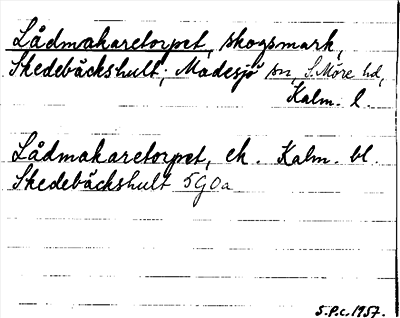 Lådmakaretorpet, skogsmark,
Skedebäckshult; Madesjö sn, S. Möre hd,
Kalm. l.
Lådmakaretorpet, ek. Kalm. bl.
Skedebäckshult 5G0a
S.P.C. 1957.